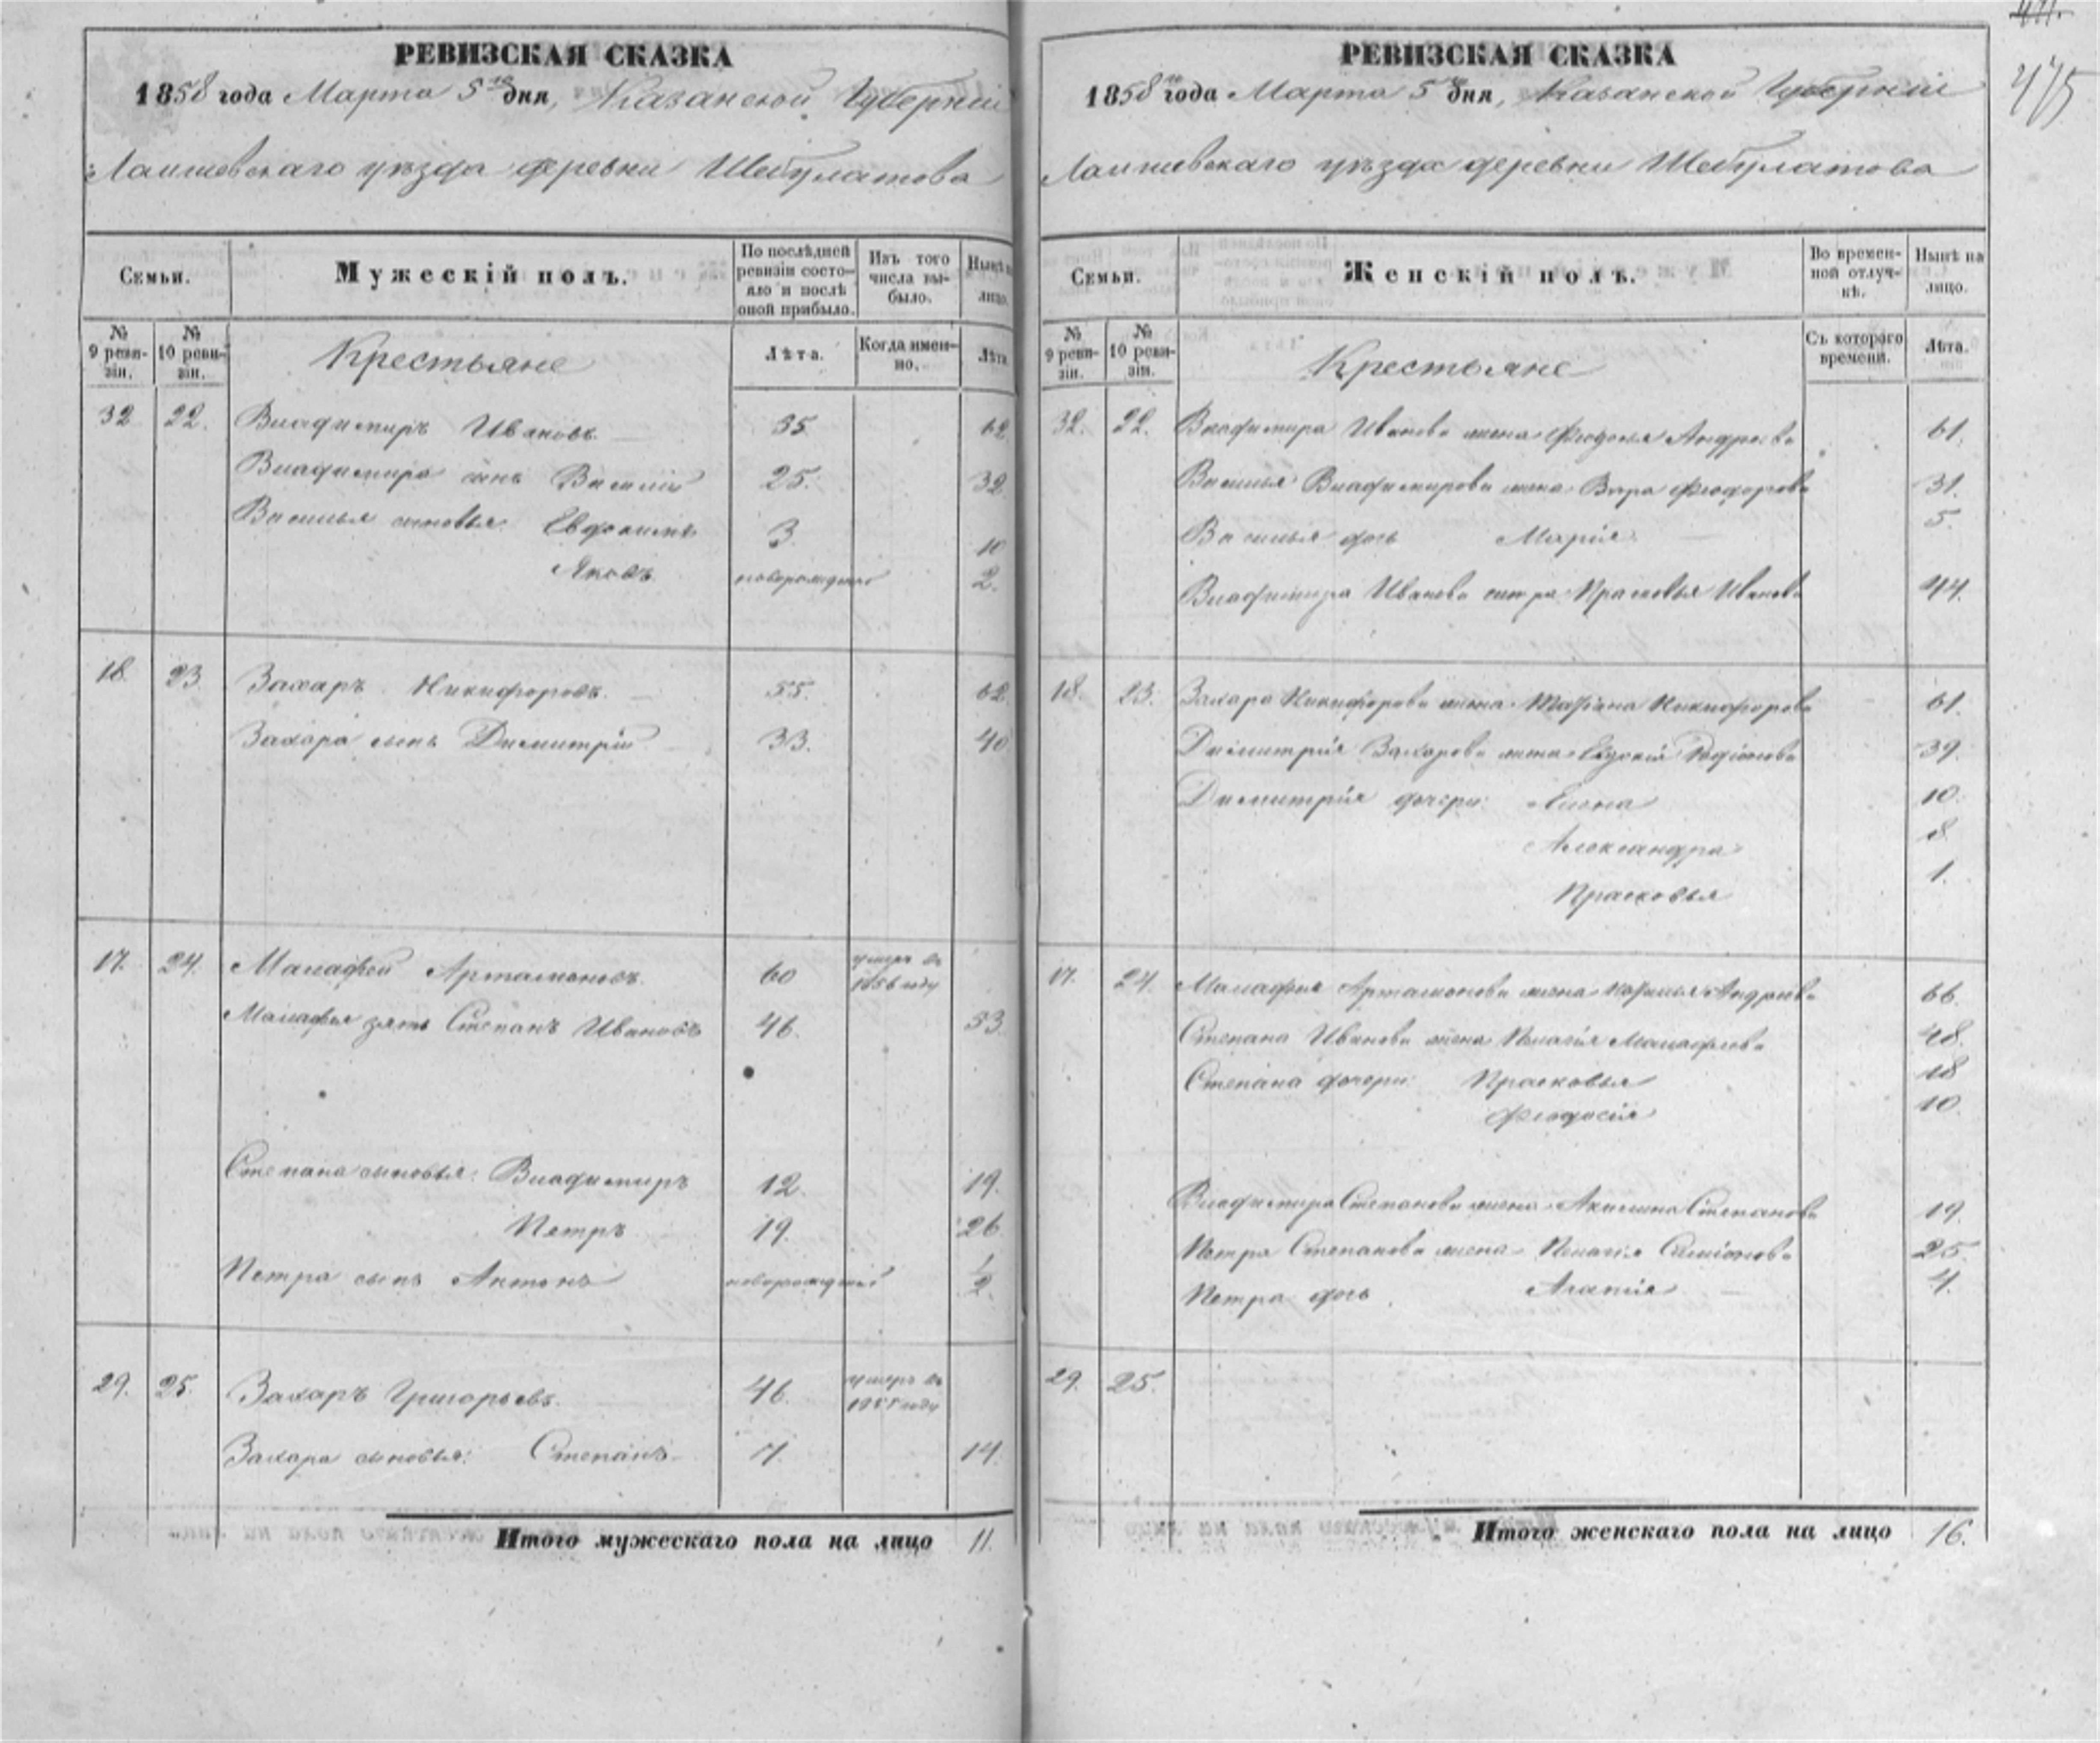 РЕВИЗСКАЯ СКАЗКА
1858 года Марта 5го дня, Казанской Губерніи
Лаишевскаго уѣзда деревни Шебулатова
Семьи.
Мужескій полъ.
По послѣдней ревизіи состояло и послѣ оной прибыло.
Изъ того числа выбыло.
Нынѣ на лицо.
№ 9 ревизіи.
№ 10 ревизіи.
Крестьяне
Лѣта.
Когда именно.
Лѣта
32 22. Владимиръ Ивановъ 55 62
Владимира сынъ Василій 25. 32
Василья сыновья: Евдокимъ 3. 10
Яковъ новорожденъ 2.
18. 23 Захаръ Никифоровъ. 55. 62
Захара сынъ Димитрій 33. 40
17. 24. Малафей Артамоновъ. 60 умеръ въ 1856 году
Малафья зять Степанъ Ивановъ 46. 53.
Степана сыновья: Владимиръ 12. 19.
Петръ 19. 26
Петра сынъ Антонъ 1/2.
29. 25. Захаръ Григорьевъ. 46. умеръ въ году
Захара сыновья: Степанъ 7. 14.
Итого мужескаго пола на лицо 11.
475
РЕВИЗСКАЯ СКАЗКА
1858го года Марта 5го дня, Казанской Губерніи
Лаишевскаго уѣзда деревни Шебулатова
Семьи.
Женскій полъ.
Во временной отлучкѣ.
Нынѣ на лицо.
№ 9 ревизіи.
№ 10 ревизіи.
Крестьяне
Съ котораго времени.
Лѣта.
32. 22. Владимира Иванова жена Андреева 61.
Василья Владимирова жена Феодорова 31.
Василья дочь Марія 5.
Владимира Иванова сестра Прасковья Иванова 44.
18. 23. Захара Никифорова жена Никифорова 61.
Димитрія Захарова жена Родіонова 39.
Димитрія дочери: Елена 10.
Александра 8
Прасковья 1.
17. 24. Малафья Артамонова жена Андреева 66.
Степана Иванова жена Пелагія Малафеева 48.
Степана дочери: Прасковья 18
Феодосія 10.
Владимира Степанова жена Акилина Степанова 19.
Петра Степанова жена Пелагія Симіонова 25.
Петра дочь Агапія 4.
29. 25.
Итого женскаго пола на лицо 16.